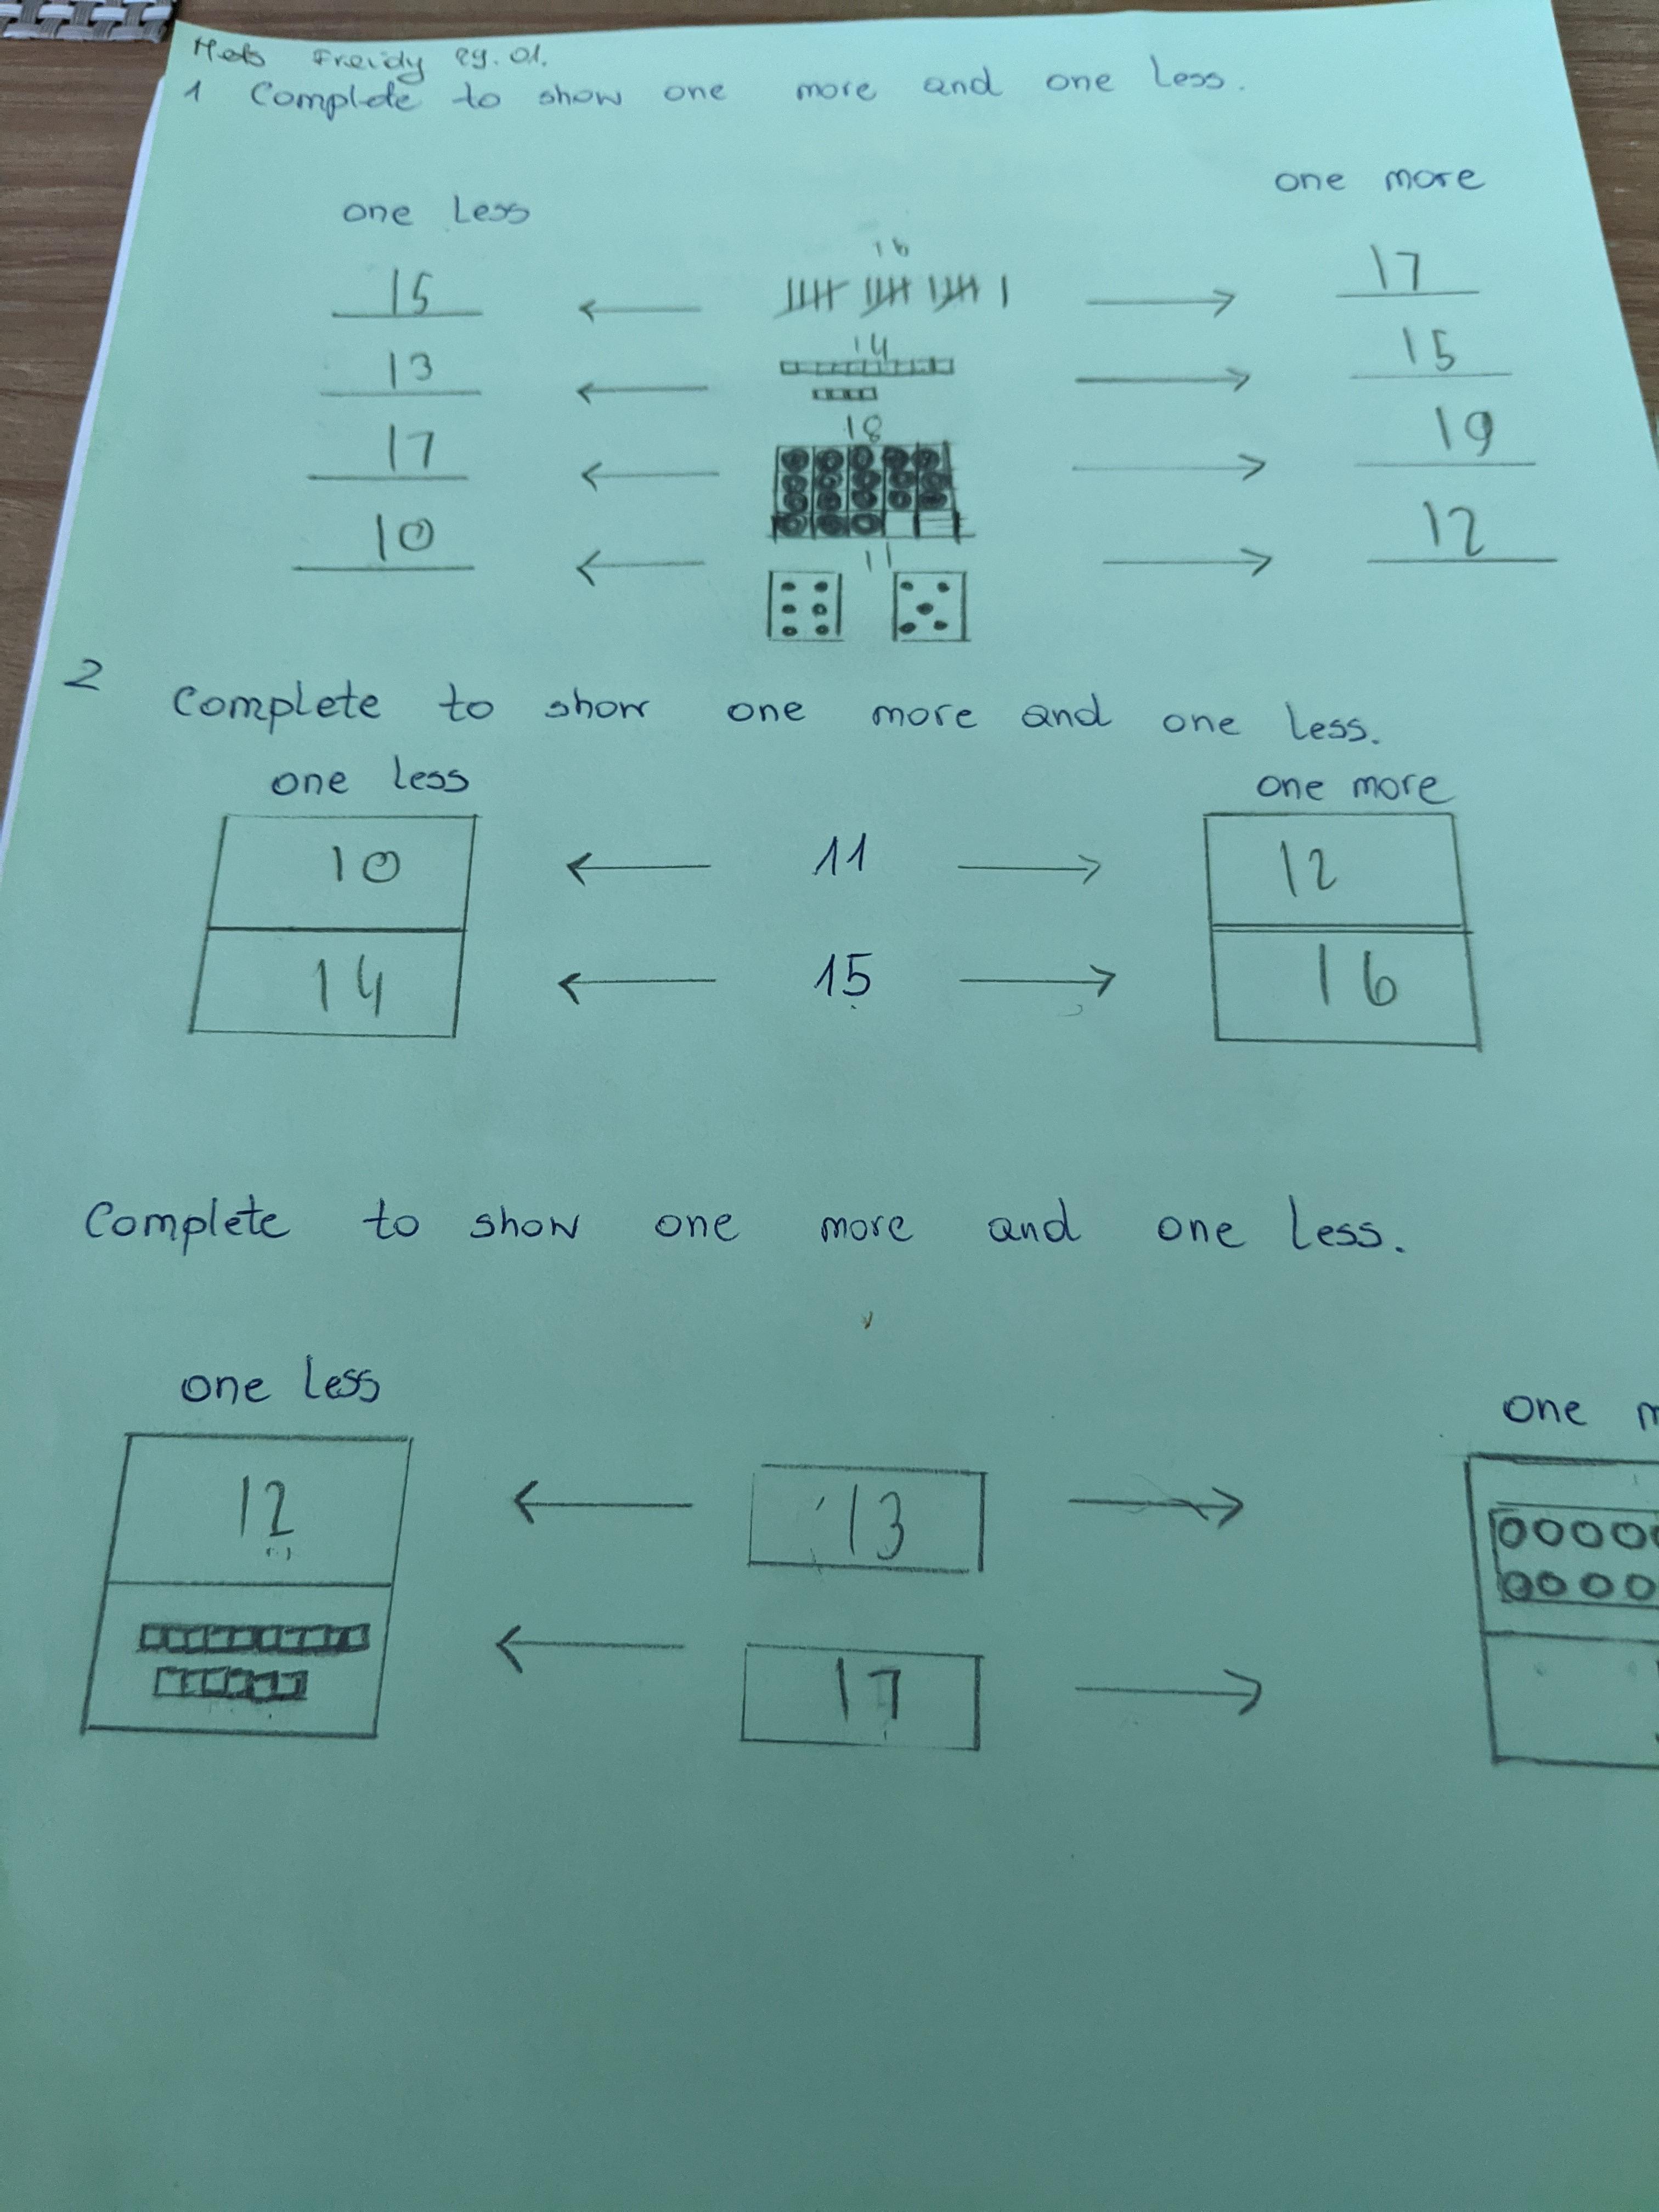 Freidy 29.01.
1 Complete to show one more and one less.
one less one more
16
15 17
14
13 15
18
17 19
11
10 12
2 Complete to show one more and one less.
one less one more
10 11 12
14 15 16
Complete to show one more and one less.
one less one m
12 13
17